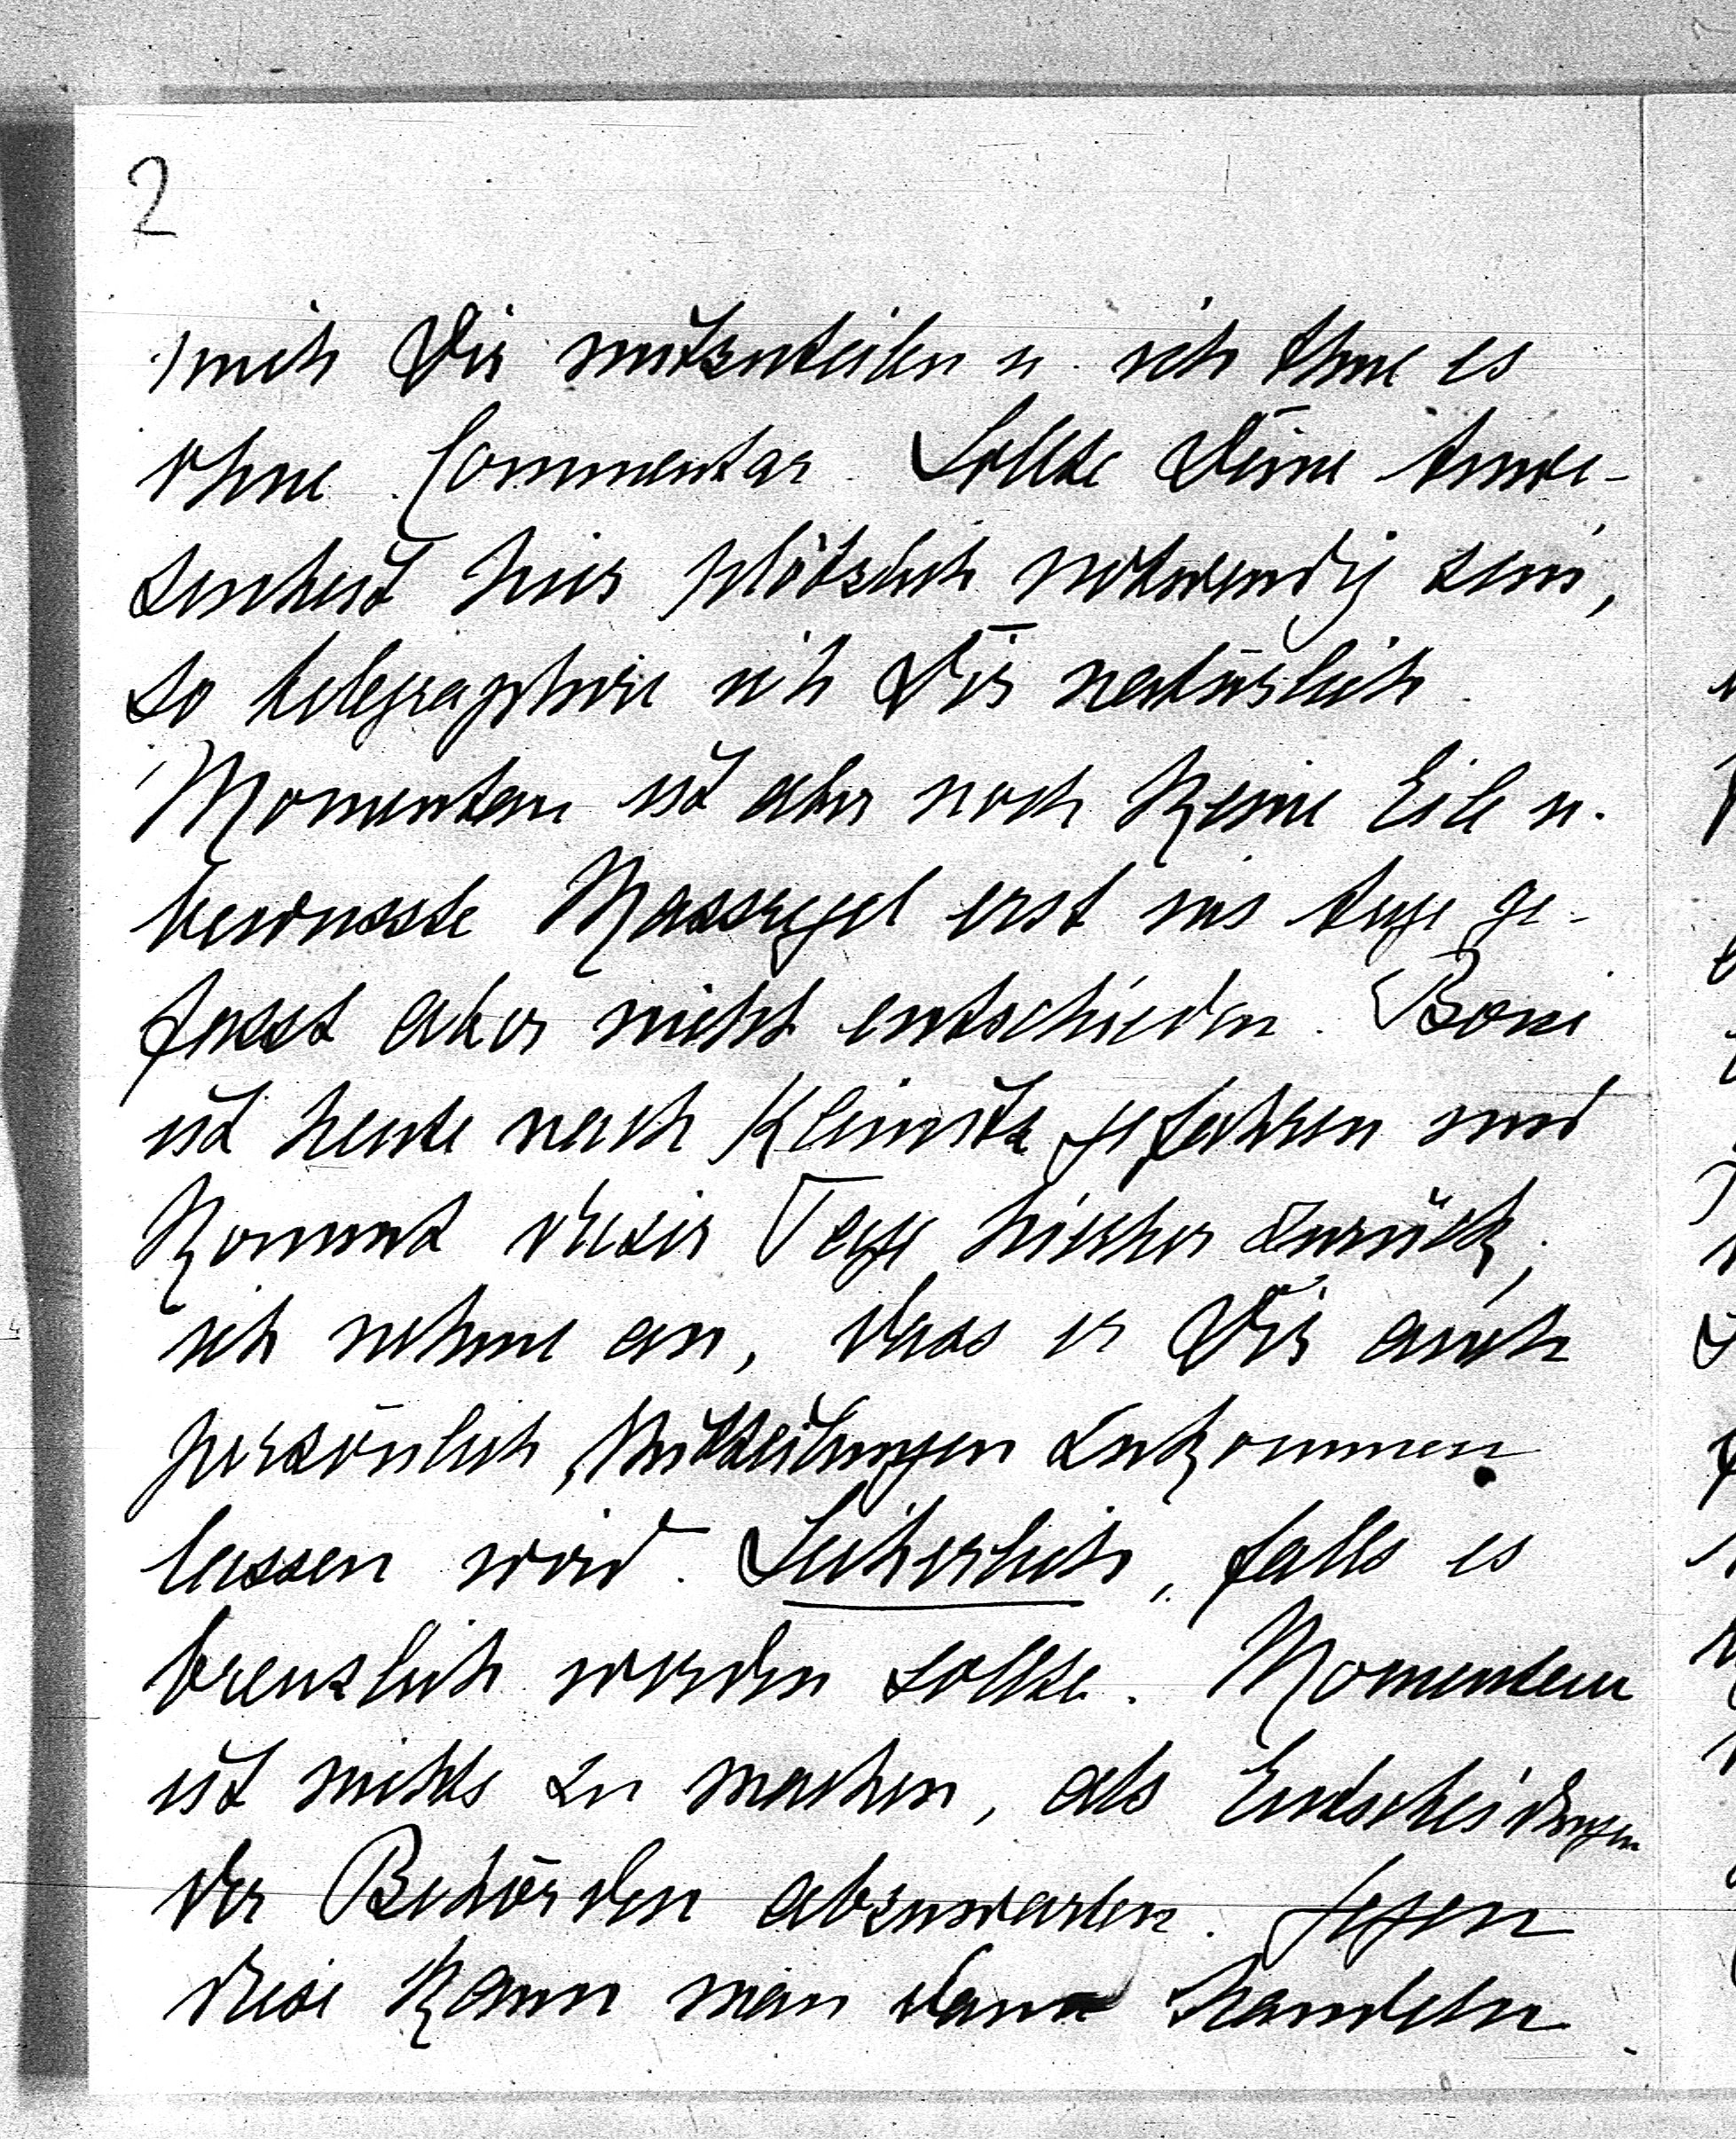 2
mich Dir mitzuteilen u. ich thue es
ohne Commentar. Sollte Deine Anwe-
senheit hier plötzlich notwendig sein,
so telegraphire ich Dir natürlich.
Momentan ist aber noch keine Eile u.
bewusste Massregel erst ins Auge ge-
fasst aber nicht entschieden. Boni
ist heute nach gefahren und
kommt dieser Tage hierher zurück,
ich nehme an, dass er Dir auch
persönlich Mitteilungen zukommen
lassen wird. Sicherlich, falls es
brenzlich werden sollte. Momentan
ist nichts zu machen, als Entscheidungen
der Behörden abzuwarten. Gegen
diese kann man dann handeln